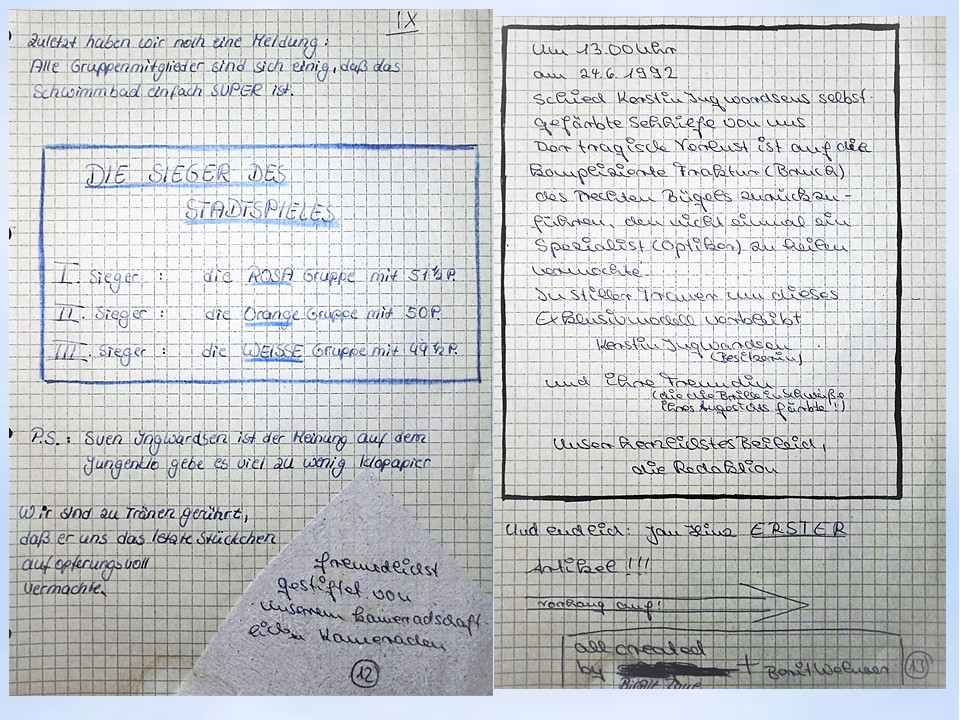 IX
Zuletzt haben wir noch eine Meldung:
Alle Gruppenmitglieder sind sich einig, daß das
Schwimmbad einfach SUPER ist.
DIE SIEGER DES
STADTSPIELES
I. Sieger : die ROSA Gruppe mit 51½P.
II. Sieger : die Orange Gruppe mit 50P.
III. Sieger : die WEISSE Gruppe mit 49½P.
P.S.: Sven Ingwardsen ist der Meinung auf dem
Jungenklo gebe es viel zu wenig Klopapier
Wir sind zu Tränen gerührt,
daß er uns das letzte Stückchen
aufopferungsvoll
vermachte.
freundlichst
gestiftet von
unserem kameradschaft
lichen Kameraden
12
Um 13.00 Uhr
am 24.6.1992
schied Kerstin Ingwardsens selbst-
gefärbte Sehhilfe von uns
Der tragische Verlust ist auf die
komplizierte Fraktur (Bruch)
des rechten Bügels zurückzu-
führen, dem nicht einmal ein
Spezialist (Optiker) zu helfen
vermochte.
In stiller Trauer um dieses
Exklusivmodell verbleibt
Kerstin Ingwardsen
(Besitzerin)
und ihre Freundin
(die die Brille im Schweiße
ihres Angesichts färbte!)
Unser herzlichstes Beileid,
die Redaktion
Und endlich: Jan Heins ERSTER
Artikel!!!
Vorhang auf!
all created
by + Berit
13